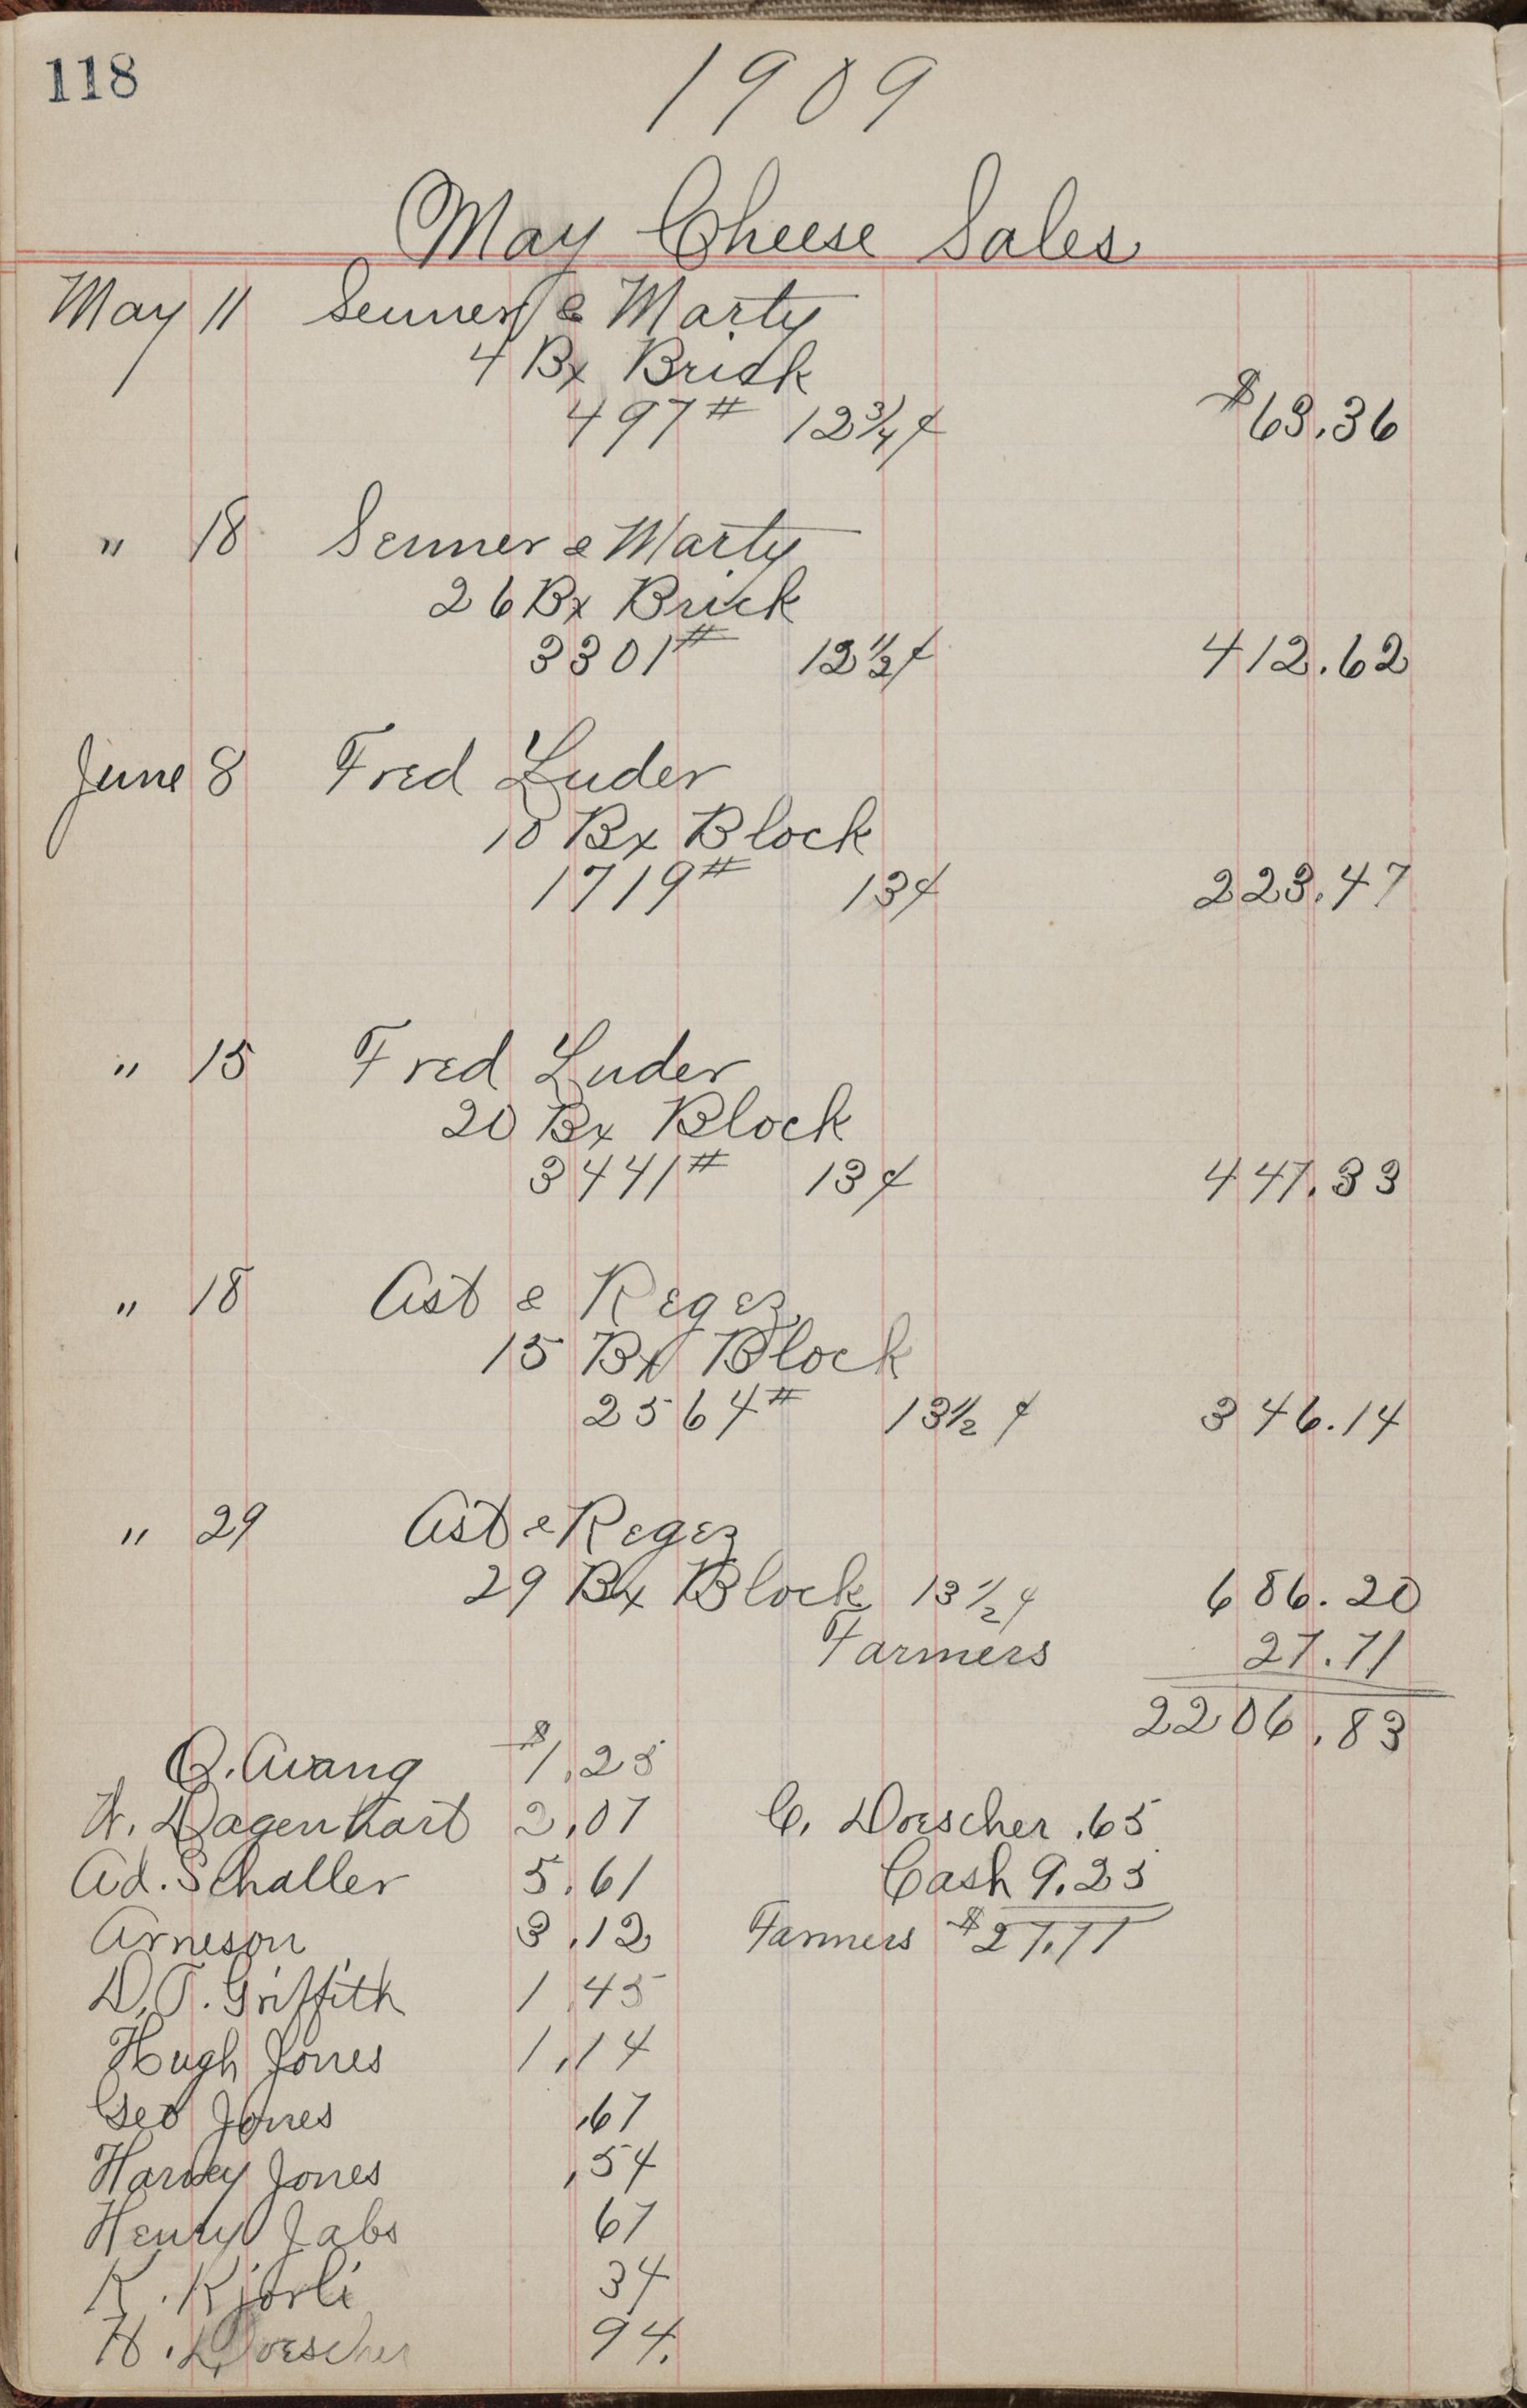 118
1909
May Cheese Sales
May 11 Senner & Marty
4 Bx Brick
497# 12 3/4 ¢ $63.36
" 18 Senner & Marty
26 Bx Brick
3301# 12 1/2 ¢ 412.62
June 8 Fred Luder
10 Bx Block
1719# 13¢ 223.47
" 15 Fred Luder
20 Bx Block
3441# 13¢ 447.33
" 18 Ast & Regez
15 Bx Block
2564# 13 1/2 ¢ 346.14
" 29 Ast & Regez
29 Bx Block 13 1/2 ¢ 686.20
Farmers 27.71
2206.83
O. Avang $1.25
W. Dagenhart 2.07 C. Doescher .65
Ad. Schaller 5.61 Cash 9.25
Arneson 3.12 Farmers $27.71
D. T. Griffith 1 45
Hugh Jones 1.14
Geo Jones .67
Harvey Jones .54
Henry Jabs 67
K. Kjorli 34
H. Doescher 94.